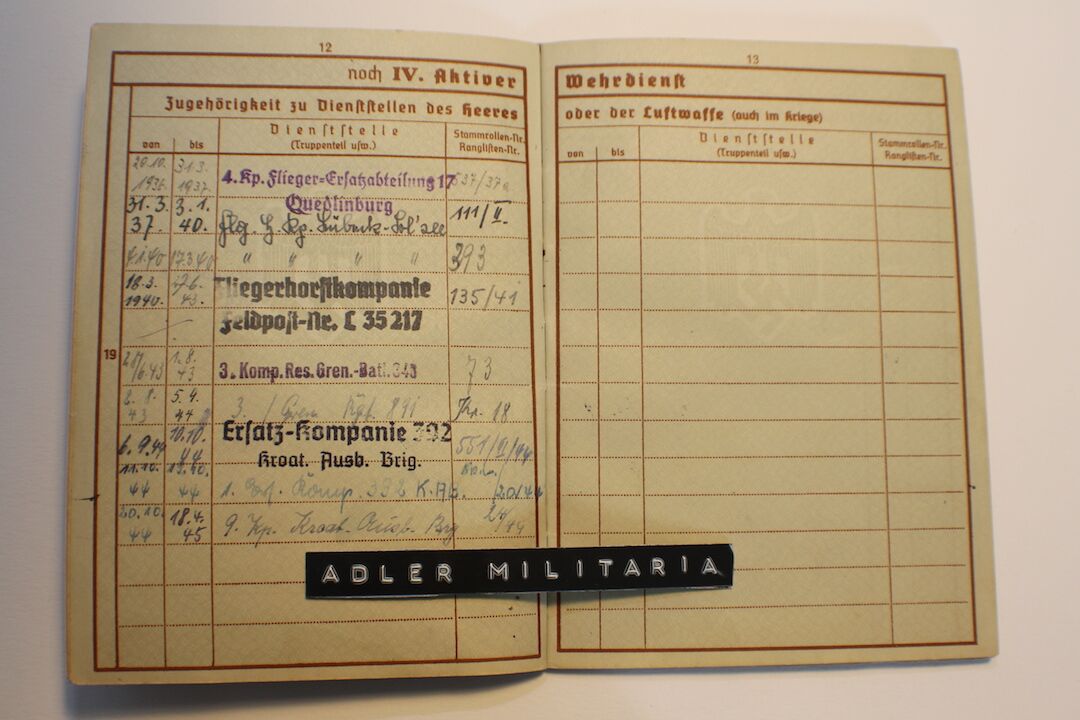 12
noch IV. Aktiver
Zugehörigkeit zu Dienststellen des Heeres
von bis Dienststelle (Truppenteil usw.) Stammrollen-Nr. Ranglisten-Nr.
20.10. 1936 31.3. 1937 4. Kp. Flieger-Ersatzabteilung 17 537/37
Quedlinburg
31.3. 37. 3.1. 40. Flg. H. Kp. Lübeck- 111/II.
4.1.40 17.3.40 " " " " 393
18.3. 1940. 43. Fliegerhorstkompanie 135/41
Feldpost-Nr. L 35217
19
6.43 1.8. 43 3. Komp. Res. Gren.-Batl. 343 73
2.8. 43 5.9. 44 3. / Gren 891 18
6.9.44 10.10. 44 Ersatz-Kompanie 392 551/II/44
Kroat. Ausb. Brig.
11.10. 44 19.10. 44 1. Komp. 392 K.AB. 20/44
20.10. 44 18.4. 45 9. Kp. Kroat. Ausb. Brg 44
13
Wehrdienst
oder der Luftwaffe (auch im Kriege)
von bis Dienststelle (Truppenteil usw.) Stammrollen-Nr. Ranglisten-Nr.
ADLER MILITARIA